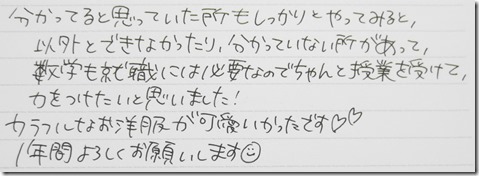 分かってると思っていた所もしっかりとやってみると、
以外とできなかったり、分かっていない所があって、
数学も就職には必要なのでちゃんと授業を受けて、
力をつけたいと思いました！
カラフルなお洋服が可愛いかったです♡♡
1年間よろしくお願いします☺